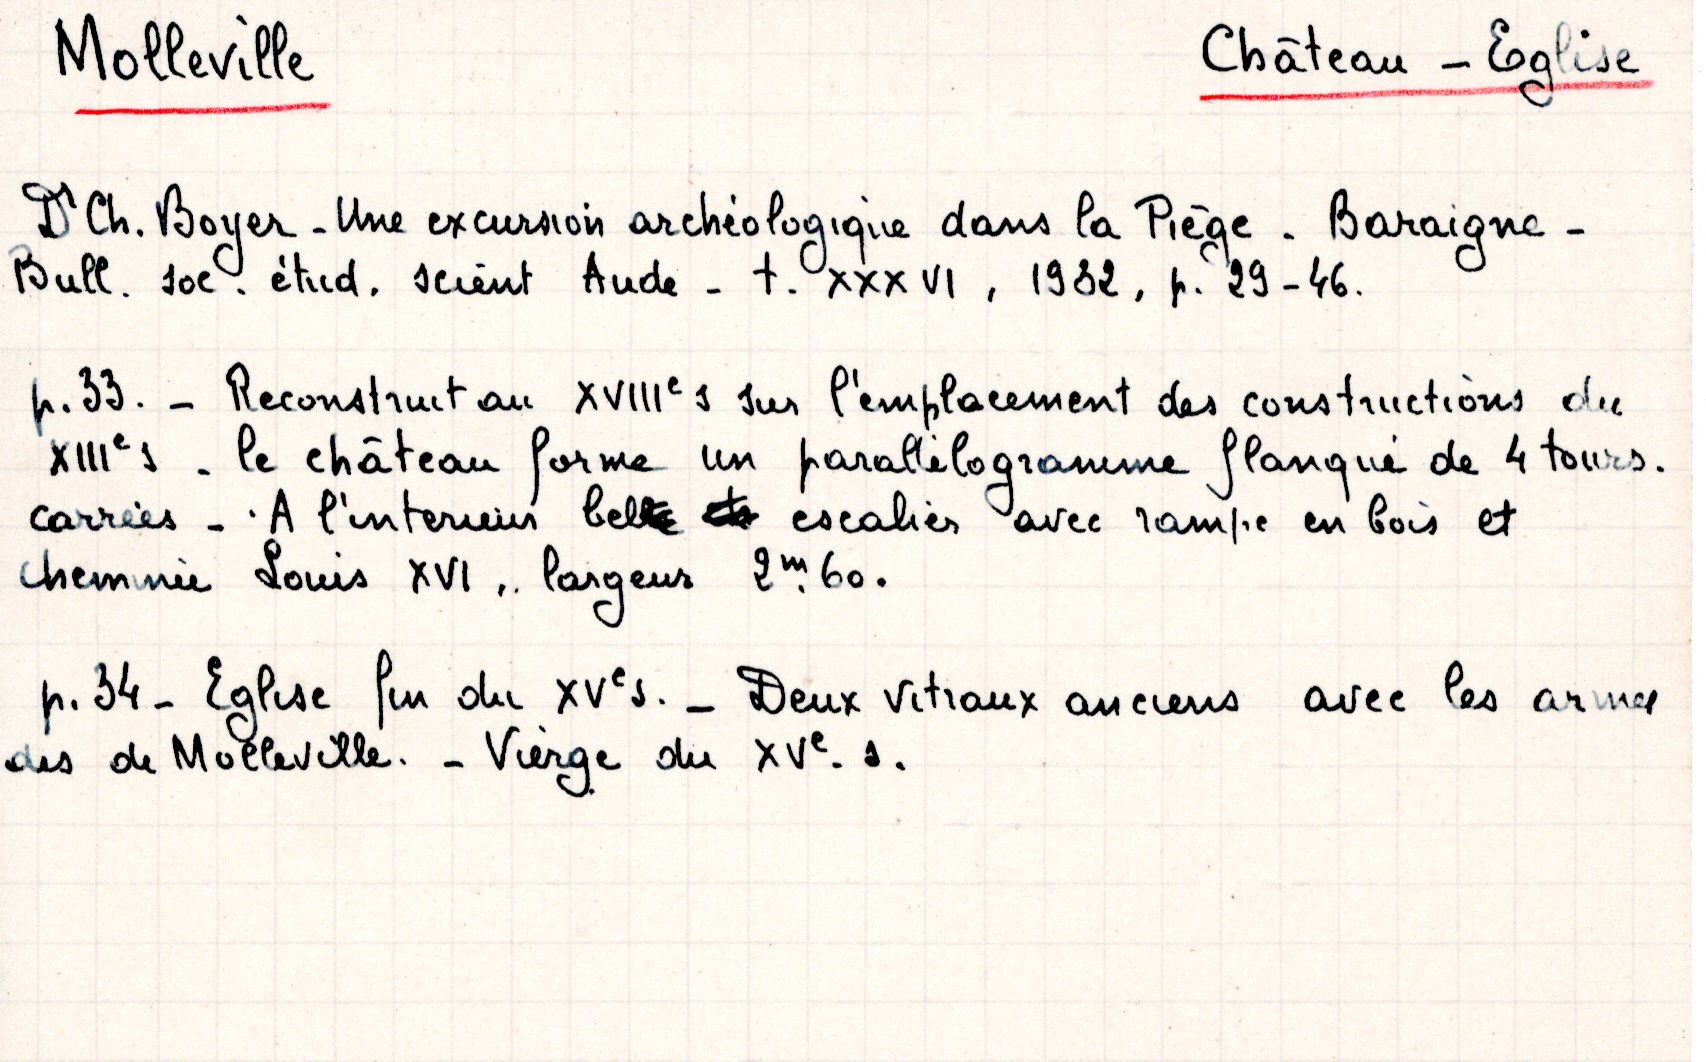 Molleville Château - Eglise
Dr Ch. Boyer - Une excursion archéologique dans la Piège. Baraigne -
Bull. soc. étud. scient Aude - t. XXXVI, 1932, p. 29-46.
p. 33. - Reconstruit au XVIIIe s sur l'emplacement des constructions du
XIIIe s - le château forme un parallélogramme flanqué de 4 tours.
carrées - A l'interieur bel escalier avec rampe en bois et
cheminée Louis XVI, largeur 2m.60.
p. 34 - Eglise fin du XVe s. - Deux vitraux anciens avec les armes
des de Molleville. - Vierge du XVe. s.